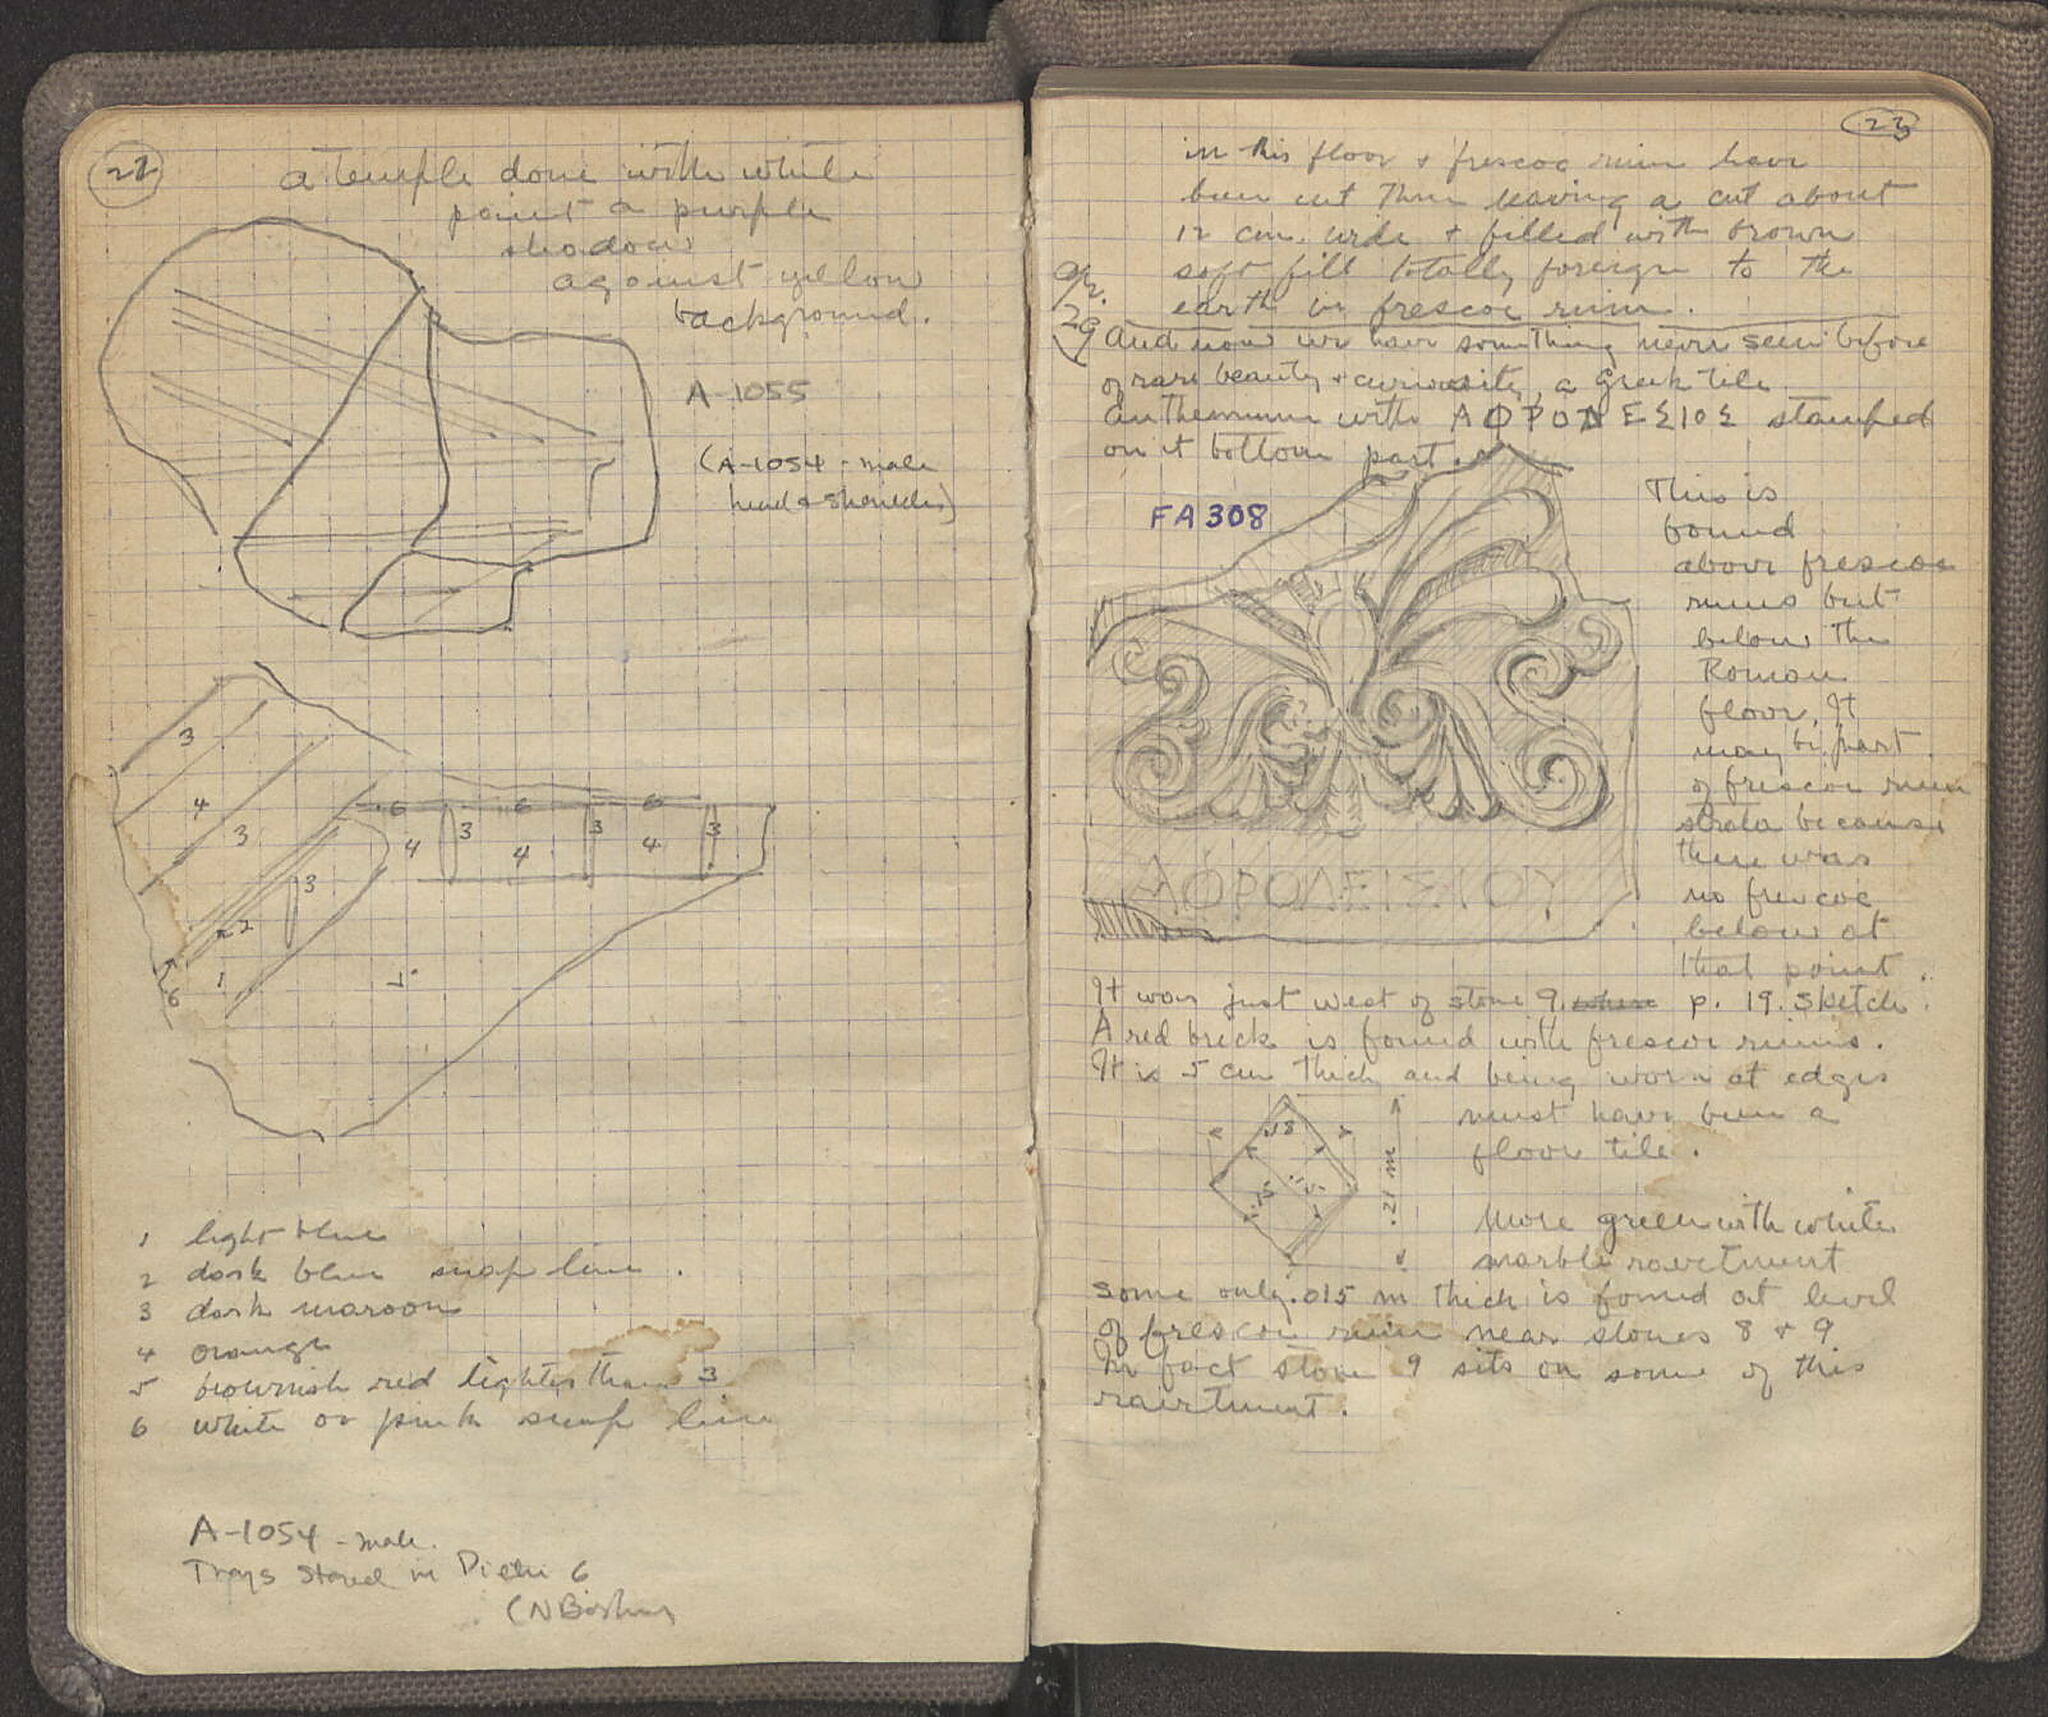 22
a temple done with white
paint & purple
shadows
against yellow
background.
A-1055
(A-1054 - male
head & shoulders)
3
4
3
3
2
1
6
5
6 6 6
4 3 4 3 4 3
1 light blue
2 dark blue snap line.
3 dark maroon
4 orange
5 brownish red lighter than 3
6 white or pink snap line
A-1054 - male.
Trays stored in
6
(N Bookidis
23
in this floor & frescoe ruin have
been cut thru leaving a cut about
12 cm. wide & filled with brown
soft fill totally foreign to the
earth in frescoe ruin.
Apr.
29
And now we have something never seen before
of rare beauty & curiousity, a Greek tile
anthemium with ΑΦΡΟΔΕΣΙΟΣ stamped
on it bottom part.
FA 308
This is
found
above frescoe
ruins but
below the
Roman
floor. It
may be part
of frescoe ruin
strata because
there was
no frescoe
below at
that point.
ΑΦΡΟΔΕΙΣΙΟΥ
It was just west of stone 9. where p. 19. sketch.
A red brick is found with frescoe ruins.
It is 5 cm thick and being worn at edges
must have been a
floor tile.
.18
.15
.15
.21 m
More green with white
marble ravetment
some only .015 m thick is found at level
of frescoe ruin near stones 8 & 9
In fact stone 9 sits on some of this
ravetment.